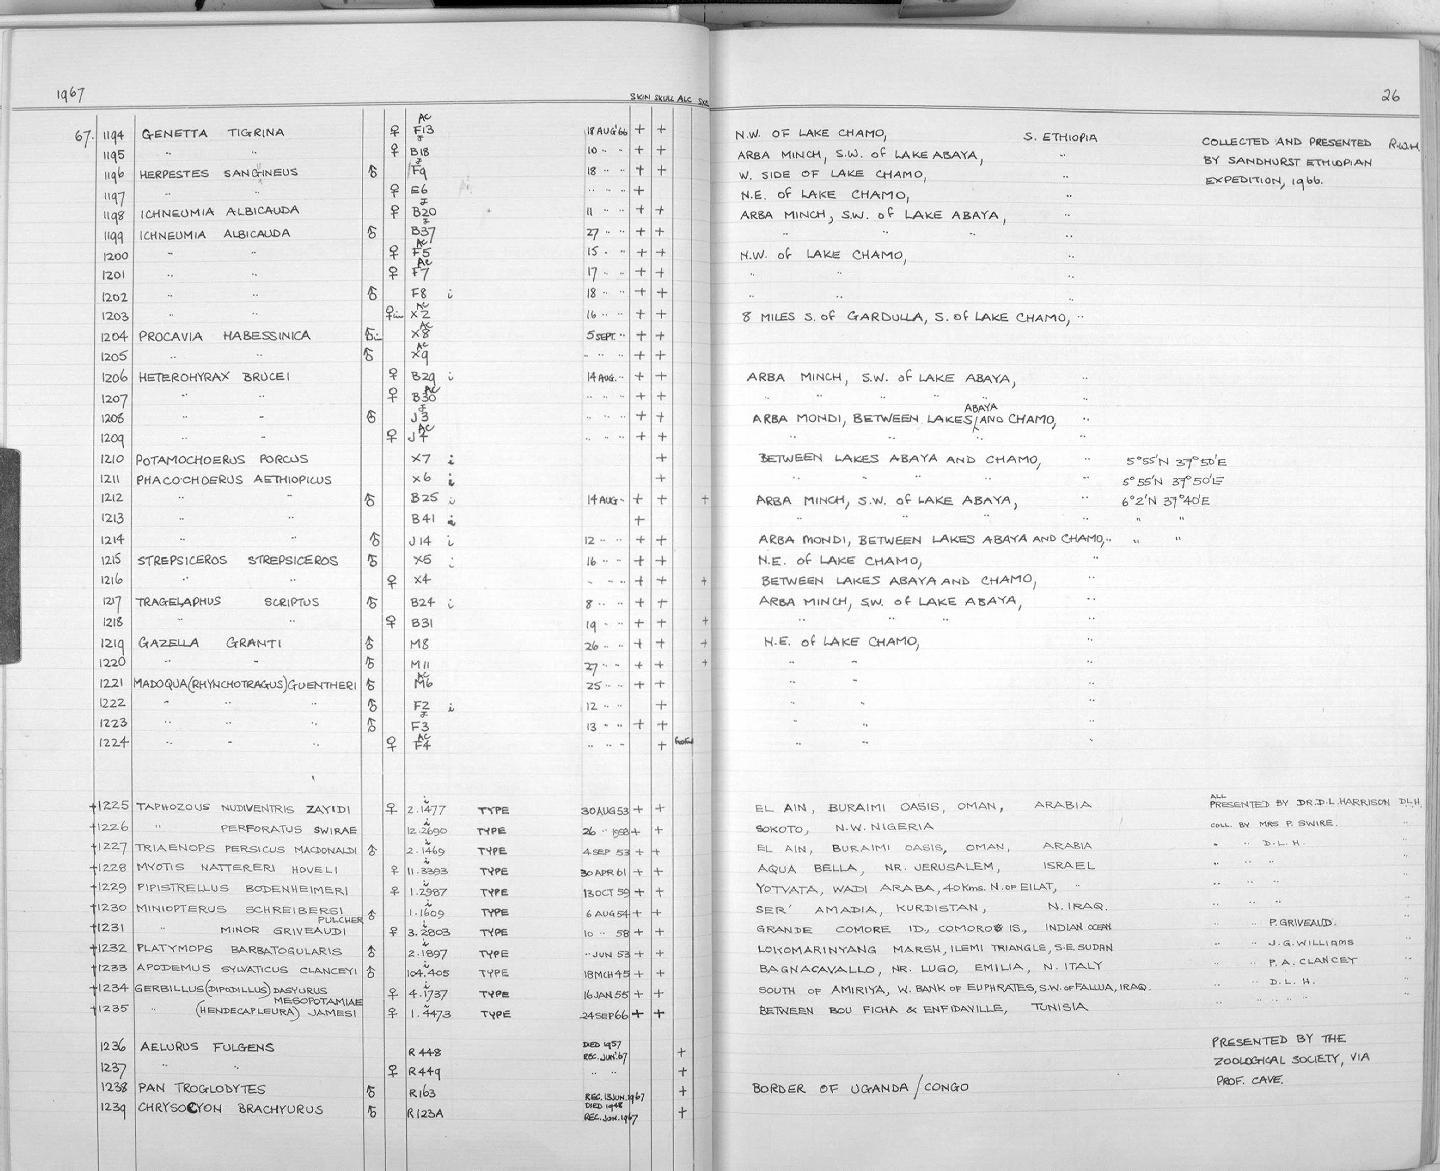 1967 SKIN SKULL ALC 26
67. 1194 GENETTA TIGRINA ♀ AC F13 18 AUG'66 + + N.W. OF LAKE CHAMO, S. ETHIOPIA COLLECTED AND PRESENTED R.W.H.
1195 " " ♀ B18 10 " " + + ARBA MINCH, S.W. of LAKE ABAYA, " BY SANDHURST ETHIOPIAN
1196 HERPESTES SANGINEUS ♂ F9 18 " " + + W. SIDE OF LAKE CHAMO, " EXPEDITION, 1966.
1197 " " ♀ E6 " " " + N.E. of LAKE CHAMO, "
1198 ICHNEUMIA ALBICAUDA ♀ B20 11 " " + + ARBA MINCH, S.W. of LAKE ABAYA, "
1199 ICHNEUMIA ALBICAUDA ♂ B37 27 " " + + " " " "
1200 " " ♀ AC F5 15 " " + + N.W. of LAKE CHAMO, "
1201 " " ♀ AC F7 17 " " + + " " "
1202 " " ♂ F8 i 18 " " + + " " "
1203 " " ♀ AC X2 16 " " + + 8 MILES S. of GARDULLA, S. of LAKE CHAMO, "
1204 PROCAVIA HABESSINICA ♂ AC X8 5 SEPT. " + +
1205 " " ♂ AC X9 " " " + +
1206 HETEROHYRAX BRUCEI ♀ B29 i 14 AUG. " + + ARBA MINCH, S.W. of LAKE ABAYA, "
1207 " " ♀ AC B30 " " " + + " " " " "
1208 " " ♂ J3 " " " + + ARBA MONDI, BETWEEN LAKES ABAYA AND CHAMO, "
1209 " " ♀ AC J4 " " " + + " " " "
1210 POTAMOCHOERUS PORCUS X7 i + BETWEEN LAKES ABAYA AND CHAMO, " 5°55'N 37°50'E
1211 PHACOCHOERUS AETHIOPICUS X6 i + " " " " 5°55'N 37°50'E
1212 " " ♂ B25 i 14 AUG " + + + ARBA MINCH, S.W. of LAKE ABAYA, " 6°2'N 37°40'E
1213 " " B41 i + " " " " " "
1214 " " ♂ J14 i 12 " " + + ARBA MONDI, BETWEEN LAKES ABAYA AND CHAMO, " " "
1215 STREPSICEROS STREPSICEROS ♂ X5 i 16 " " + + N.E. of LAKE CHAMO, "
1216 " " ♀ X4 " " " + + + BETWEEN LAKES ABAYA AND CHAMO, "
1217 TRAGELAPHUS SCRIPTUS ♂ B24 i 8 " " + + ARBA MINCH, S.W. of LAKE ABAYA, "
1218 " " ♀ B31 19 " " + + + " " " "
1219 GAZELLA GRANTI ♂ M8 26 " " + + + N.E. of LAKE CHAMO, "
1220 " " ♂ M11 27 " " + + + " " "
1221 MADOQUA (RHYNCHOTRAGUS) GUENTHERI ♂ AC M6 25 " " + + " " "
1222 " " " ♂ F2 i 12 " " + " " "
1223 " " " ♂ F3 13 " " + + " " "
1224 " " " ♀ AC F4 " " " + " " "
†1225 TAPHOZOUS NUDIVENTRIS ZAYIDI ♀ 2.1477 TYPE 30 AUG 53 + + EL AIN, BURAIMI OASIS, OMAN, ARABIA ALL PRESENTED BY DR. D.L. HARRISON D.L.H.
†1226 " PERFORATUS SWIRAE 12.2690 TYPE 26 " 1958 + + SOKOTO, N.W. NIGERIA COLL. BY MRS P. SWIRE. "
†1227 TRIAENOPS PERSICUS MACDONALDI ♂ 2.1469 TYPE 4 SEP 53 + + EL AIN, BURAIMI OASIS, OMAN, ARABIA " " D.L.H. "
†1228 MYOTIS NATTERERI HOVELI ♀ 11.3393 TYPE 30 APR 61 + + AQUA BELLA, NR. JERUSALEM, ISRAEL " " " "
†1229 PIPISTRELLUS BODENHEIMERI ♀ 1.2987 TYPE 13 OCT 59 + + YOTVATA, WADI ARABA, 40 Kms. N. of EILAT, " " " " "
†1230 MINIOPTERUS SCHREIBERSI PULCHER ♂ 1.1609 TYPE 6 AUG 54 + + SER' AMADIA, KURDISTAN, N. IRAQ. " " " "
†1231 " MINOR GRIVEAUDI ♀ 3.2803 TYPE 10 " 58 + + GRANDE COMORE ID, COMORO IS, INDIAN OCEAN " " P. GRIVEAUD. "
†1232 PLATYMOPS BARBATOGULARIS ♂ 2.1897 TYPE " JUN 53 + + LOKOMARINYANG MARSH, ILEMI TRIANGLE, S.E. SUDAN " " J.G. WILLIAMS "
†1233 APODEMUS SYLVATICUS CLANCEYI ♂ 104.405 TYPE 18 MCH 45 + + BAGNACAVALLO, NR. LUGO, EMILIA, N. ITALY " " P.A. CLANCEY "
†1234 GERBILLUS (DIPODILLUS) DASYURUS MESOPOTAMIAE ♀ 4.1737 TYPE 16 JAN 55 + + SOUTH OF AMIRIYA, W. BANK OF EUPHRATES, S.W. of FALLUA, IRAQ. " " D.L.H. "
†1235 " (HENDECAPLEURA) JAMESI ♀ 1.4473 TYPE 24 SEP 66 + + BETWEEN BOU FICHA & ENFIDAVILLE, TUNISIA " " " " "
1236 AELURUS FULGENS R 448 DIED 1957 REC. JUN.'67 + PRESENTED BY THE
1237 " " ♀ R 449 " " + ZOOLOGICAL SOCIETY, VIA
1238 PAN TROGLODYTES ♂ R163 REC. 13 JUN. 1967 + BORDER OF UGANDA/CONGO PROF. CAVE.
1239 CHRYSOCYON BRACHYURUS ♂ R123A DIED 1948 REC. JUN. 1967 +